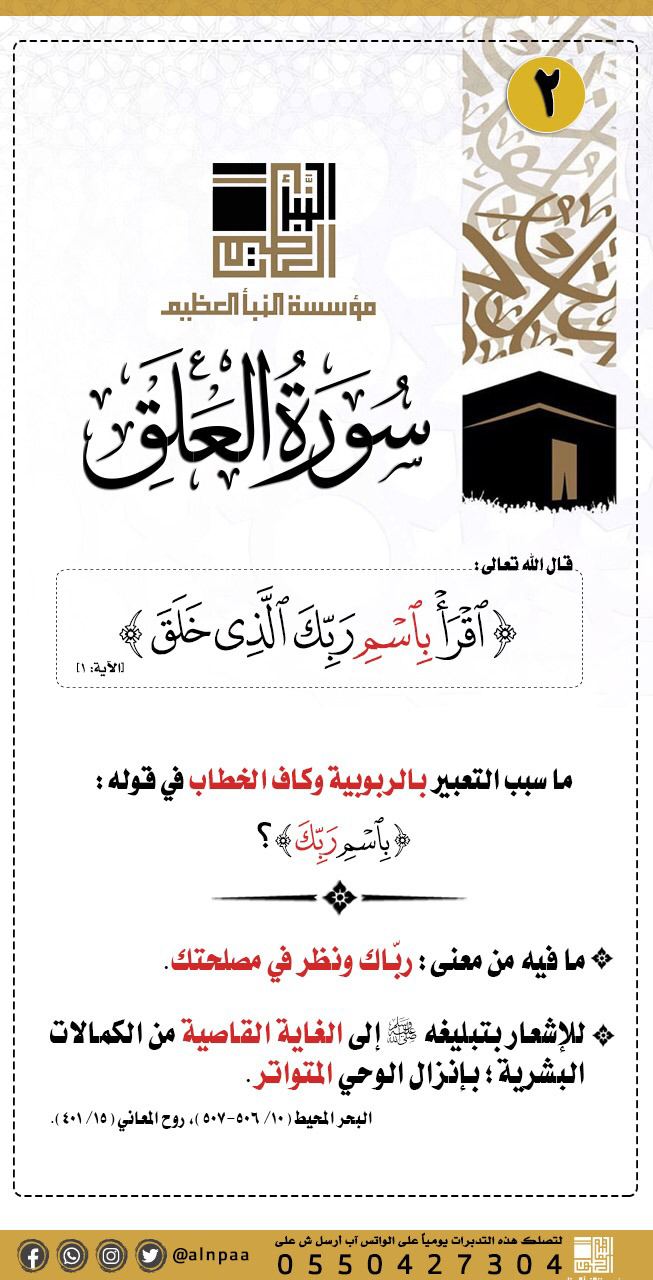 ٢
النبأ العظيم
مؤسسة النبأ العظيم
سُورَةُ العَلَقِ
قال الله تعالى:
﴿ٱقۡرَأۡ بِٱسۡمِ رَبِّكَ ٱلَّذِى خَلَقَ﴾
[الآية: ١]
ما سبب التعبير بالربوبية وكاف الخطاب في قوله :
﴿بِٱسۡمِ رَبِّكَ﴾؟
ما فيه من معنى : ربّاك ونظر في مصلحتك.
للإشعار بتبليغه ﷺ إلى الغاية القاصية من الكمالات
البشرية ؛ بإنزال الوحي المتواتر.
البحر المحيط (١٠/ ٥٠٦-٥٠٧)، روح المعاني (١٥/ ٤٠١).
لتصلك هذه التدبرات يومياً على الواتس آب أرسل ش على
0550427304
@alnpaa